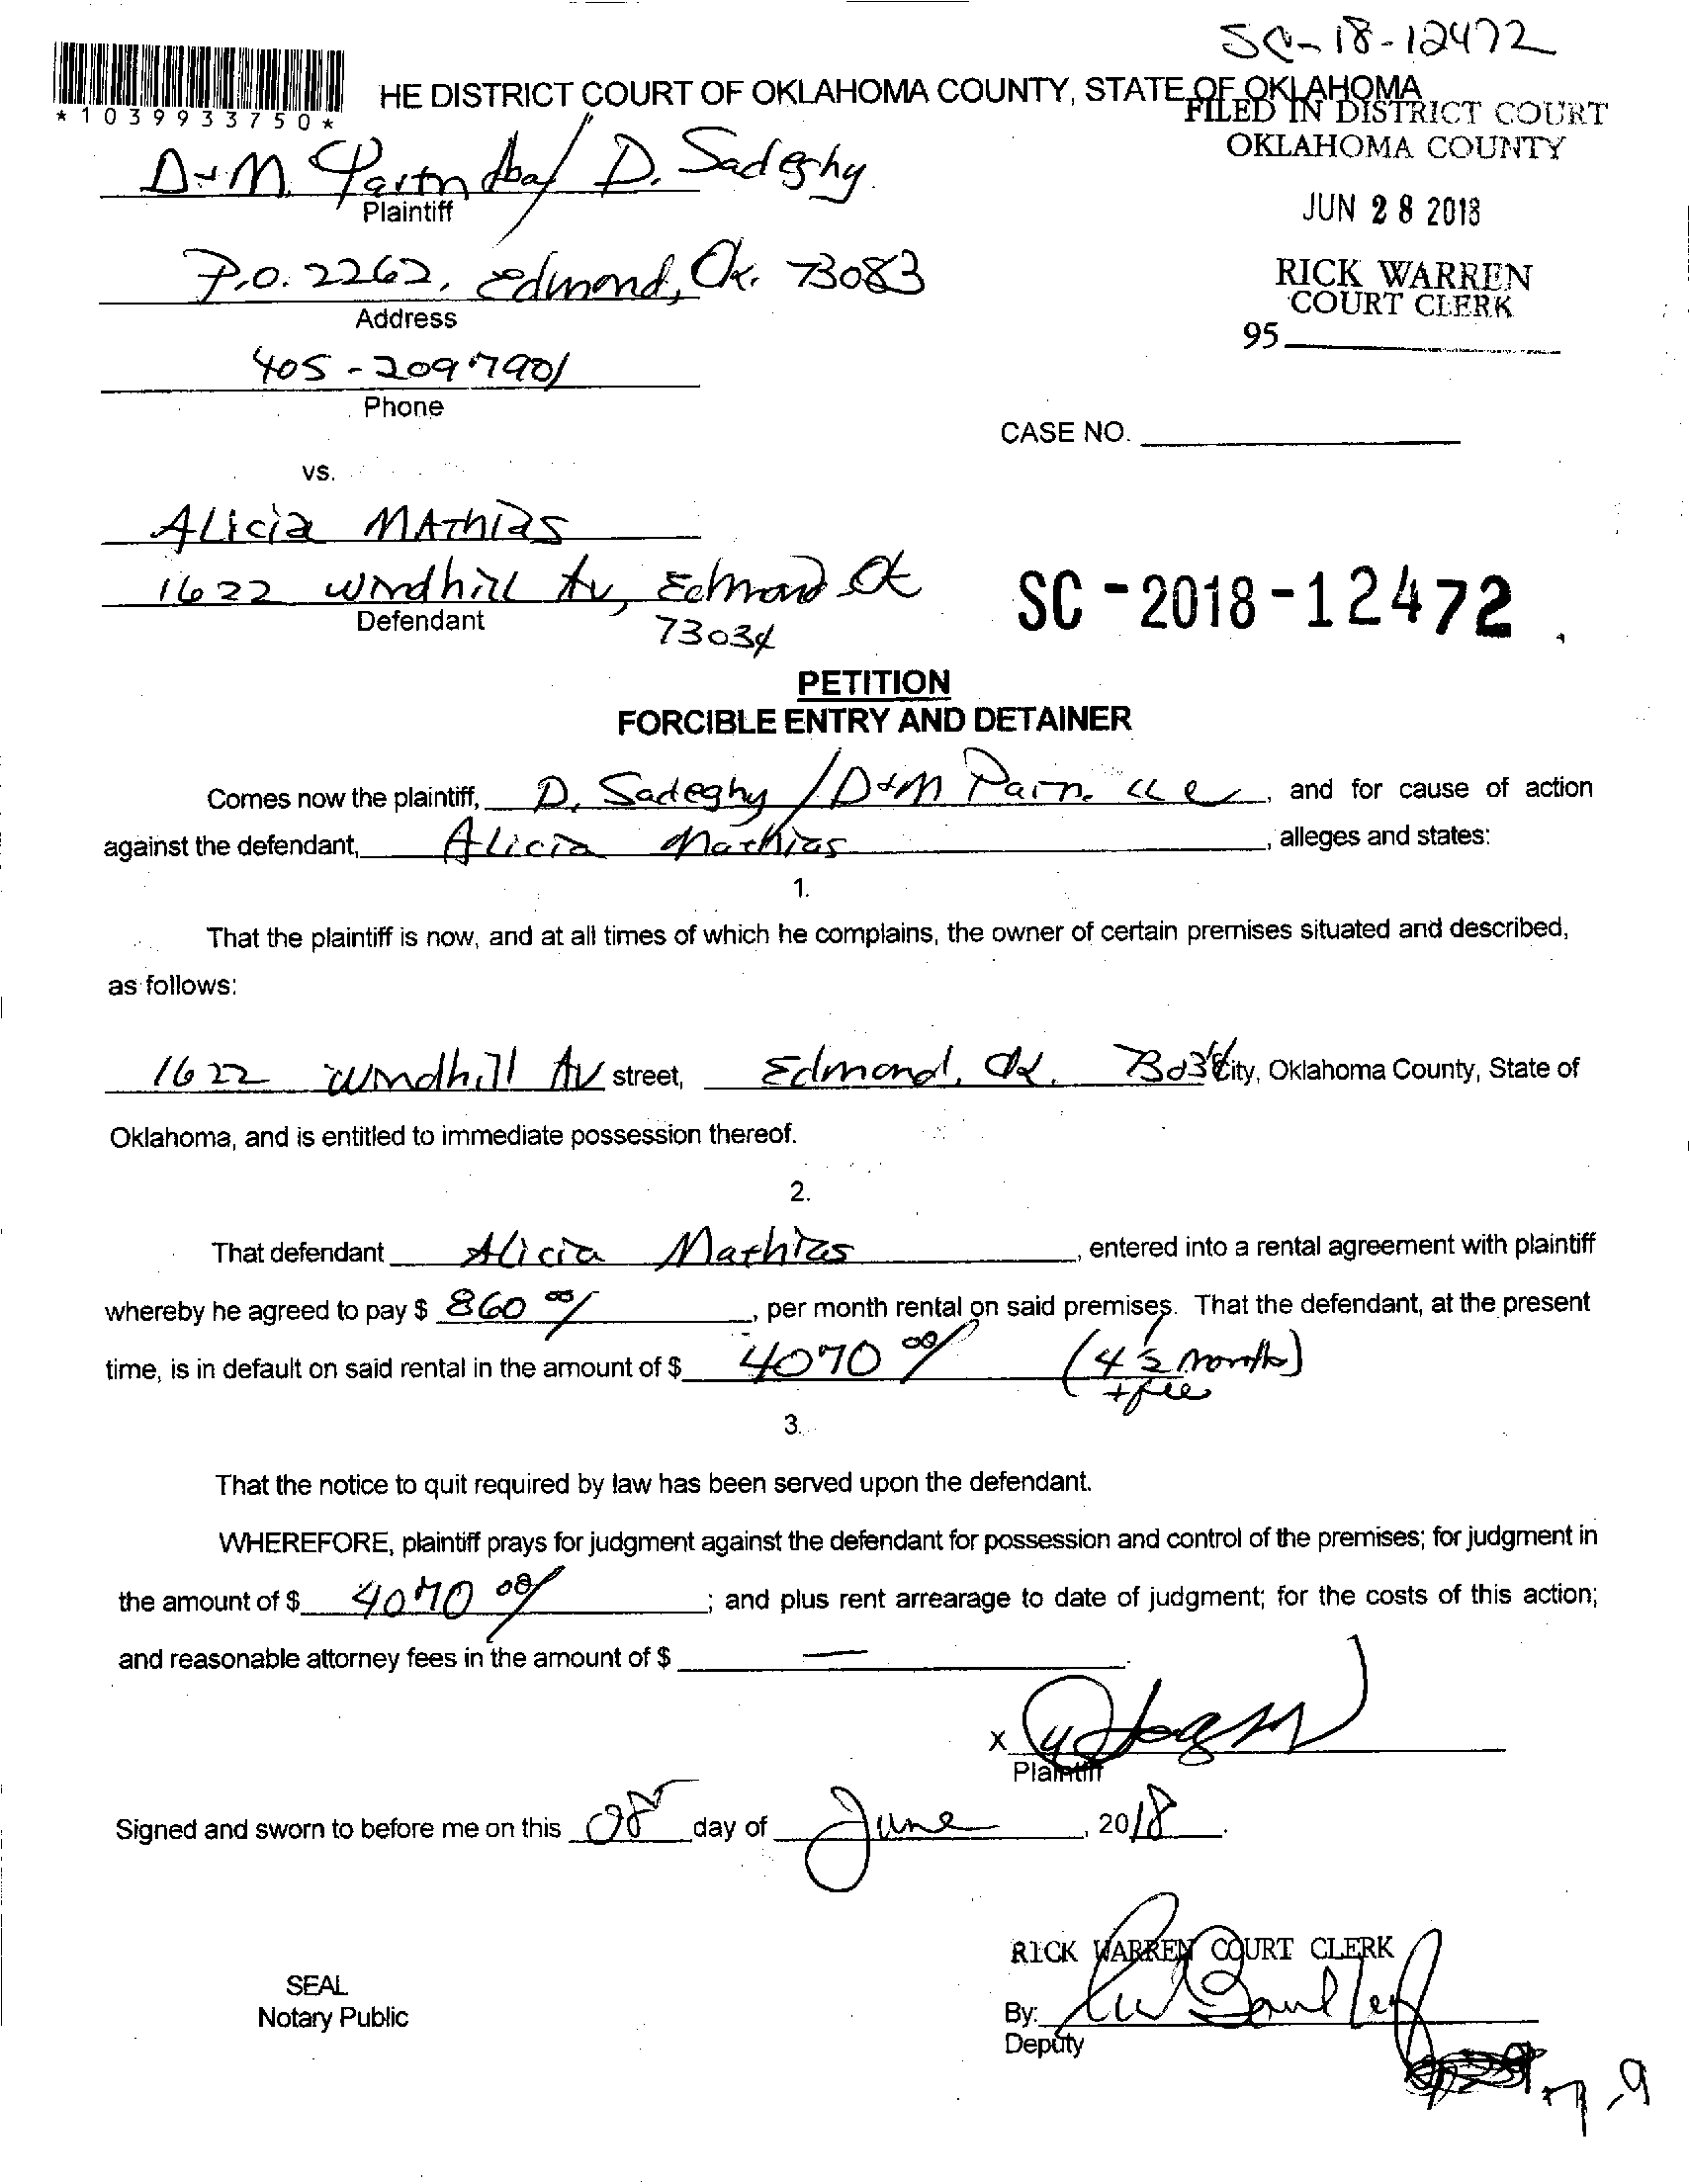 SC-18-12472
HE DISTRICT COURT OF OKLAHOMA COUNTY, STATE OF OKLAHOMA
*1039933750*
FILED IN DISTRICT COURT
OKLAHOMA COUNTY
D+M Partn dba/ D. Sadeghy
Plaintiff
JUN 28 2018
P.O. 2262, Edmond, Ok. 73083
Address
RICK WARREN
COURT CLERK
95
405-209-7901
Phone
CASE NO.
vs.
Alicia Mathias
1622 windhill Av, Edmond Ok
Defendant
73034
SC-2018-12472
PETITION
FORCIBLE ENTRY AND DETAINER
Comes now the plaintiff, D. Sadeghy / D+M Partn. LLC, and for cause of action
against the defendant, Alicia Mathias, alleges and states:
1.
That the plaintiff is now, and at all times of which he complains, the owner of certain premises situated and described,
as follows:
1622 Windhill Av street, Edmond, Ok. 73034 City, Oklahoma County, State of
Oklahoma, and is entitled to immediate possession thereof.
2.
That defendant Alicia Mathias, entered into a rental agreement with plaintiff
whereby he agreed to pay $ 860 00/, per month rental on said premises. That the defendant, at the present
time, is in default on said rental in the amount of $ 4070 00/ (4 1/2 months)
+ fee
3.
That the notice to quit required by law has been served upon the defendant.
WHEREFORE, plaintiff prays for judgment against the defendant for possession and control of the premises; for judgment in
the amount of $ 4070 00/; and plus rent arrearage to date of judgment; for the costs of this action;
and reasonable attorney fees in the amount of $ —
X
Plaintiff
Signed and sworn to before me on this 28 day of June, 2018.
RICK WARREN COURT CLERK
SEAL
Notary Public
By:
Deputy